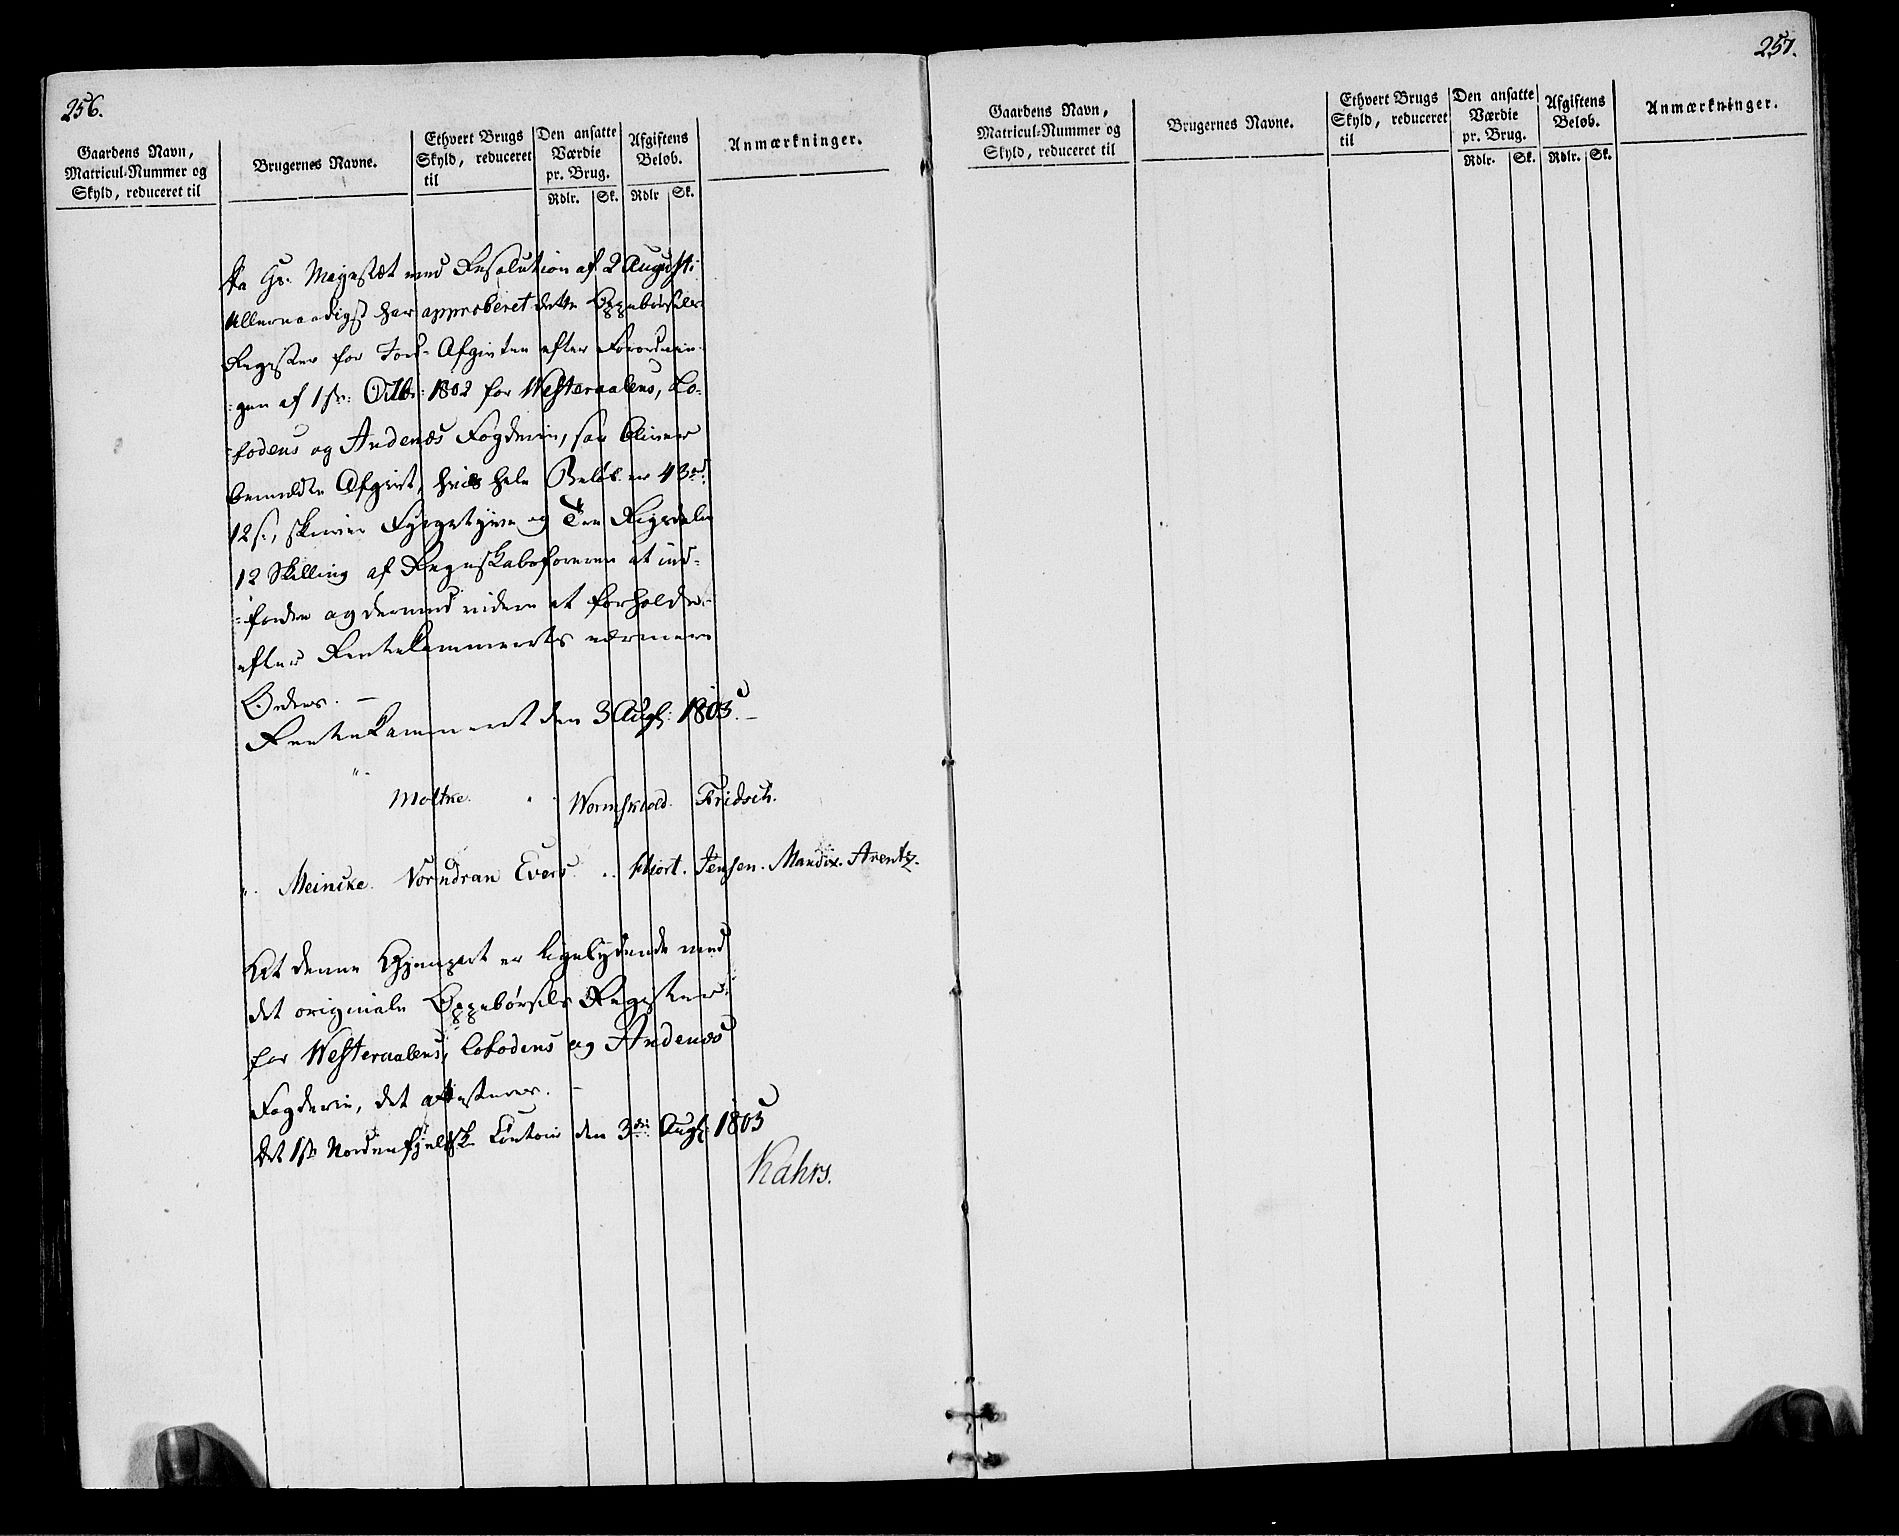 256.
Gaardens Navn,
Matricul-Nummer og
Skyld, reduceret til
Brugernes Navne.
Ethvert Brugs
Skyld, reduceret
til
Den ansatte
Værdie
pr. Brug.
Rdlr. Sk.
Afgiftens
Beløb.
Rdlr Sk.
Anmærkninger.
Da Hs: Mayestæt med Resolution af 2 August:
Allernaadigst har approberet dette Oppebørsels-
Register for Jord-Afgivten efter Forordnin-
:gen af 1ste Octb: 1802 for Westeraalens, Lo-
:fodens og Andenæs Fogderie, saa bliver
bemeldte Afgivt, hvis hele Beløb er 43rd
12s:, skriver Fyrgetyve og Tre Rigsdaler
12 Skilling af Regnskabsføreren at ind-
:fordre og dermed videre at forholde
efter Rentekammerets nærmere
Ordres. —
Rentekammeret den 3 Aug: 1803. —
Moltke. Wormskiold. Fridsch.
Meincke. Vorndran Evers. Hiort. Jensen. Mandix. Arentz.
At denne Gjenpart er ligelydende med
det originale Oppebørsels Register
for Westeraalens, Lofodens og Andenæs
Fogderie, det attesterer. —
Det 1ste Nordenfjeldske Contoir den 3die Aug: 1803
Kahrs.
257.
Gaardens Navn,
Matricul-Nummer og
Skyld, reduceret til
Brugernes Navne.
Ethvert Brugs
Skyld, reduceret
til
Den ansatte
Værdie
pr. Brug.
Rdlr. Sk.
Afgiftens
Beløb.
Rdlr. Sk.
Anmærkninger.